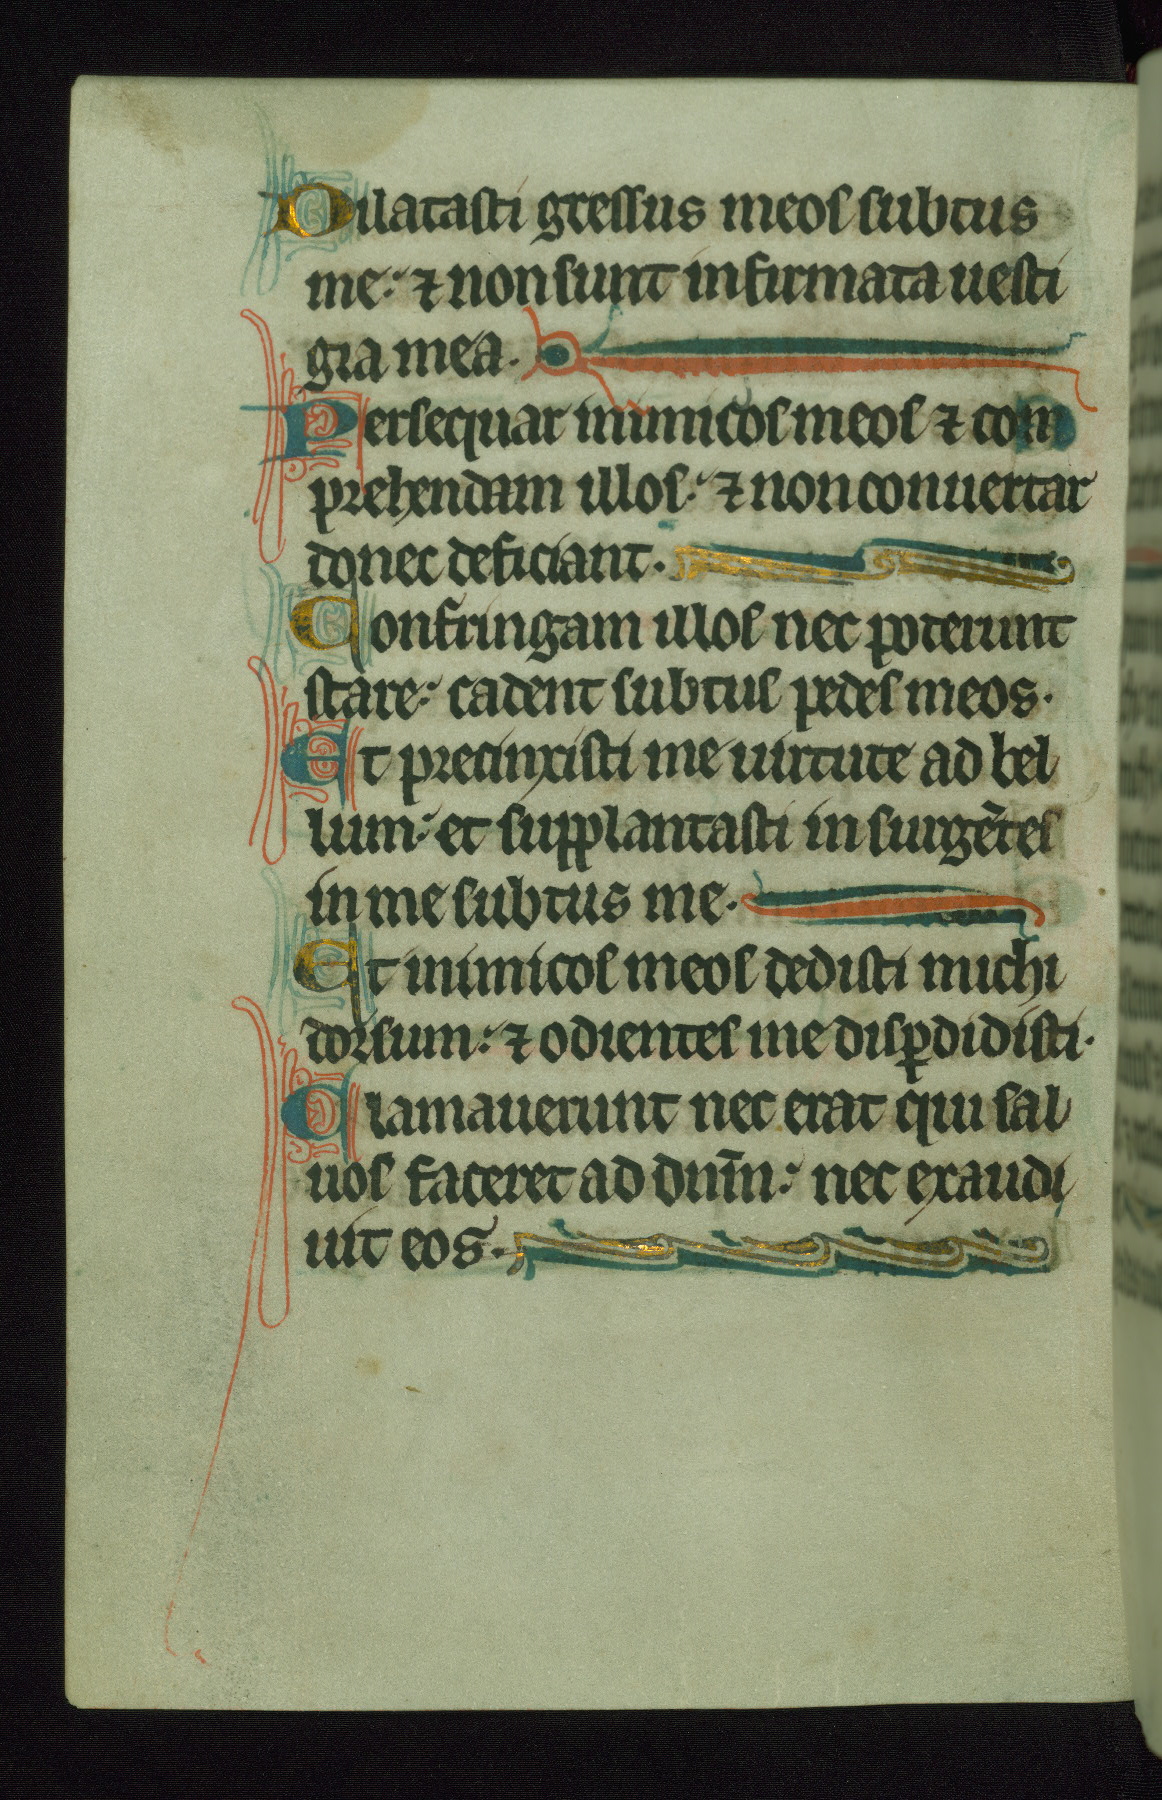 Dilatasti gressus meos subtus
me: ⁊ non sunt infirmata uesti
gia mea.
Persequar inimicos meos ⁊ com
prehendam illos: ⁊ non conuertar
donec deficiant.
Confringam illos nec poterunt
stare: cadent subtus pedes meos.
Et precinxisti me uirtute ad bel
lum: et supplantasti insurgētes
in me subtus me.
Et inimicos meos dedisti michi
dorsum: ⁊ odientes me disꝑdidisti.
Clamauerunt nec erat qui sal
uos faceret ad dnm̄: nec exaudi
uit eos.